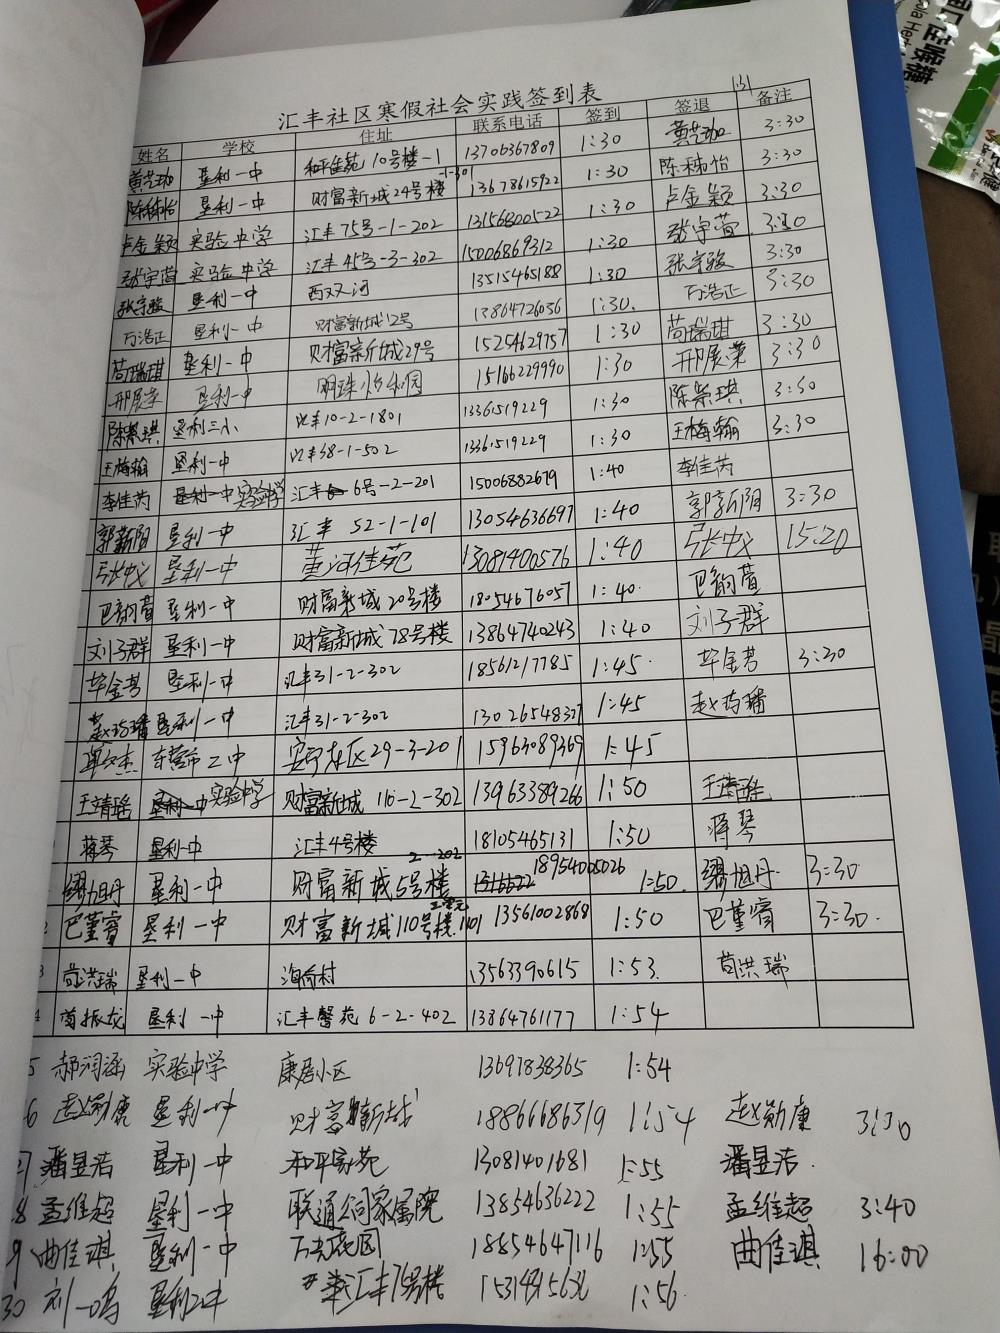 汇丰社区寒假社会实践签到表 131
姓名 学校 住址 联系电话 签到 签退 备注
黄艺珈 垦利一中 和平佳苑10号楼-1 13706367809 1:30 黄艺珈 3:30
陈秭怡 垦利一中 财富新城24号楼-1-301 13678615922 1:30 陈秭怡 3:30
卢金颖 实验中学 汇丰75号-1-202 13156800522 1:30 卢金颖 3:30
张宇萱 实验中学 汇丰45号-3-302 15006869312 1:30 张宇萱 3:30
张宇骏 垦利一中 西双河 13515465188 1:30 张宇骏 3:30
万浩正 垦利一中 财富新城12号 13864726036 1:30. 万浩正 3:30
苟瑞琪 垦利一中 财富新城29号 15254629757 1:30 苟瑞琪 3:30
邢展荣 垦利一中 明珠怡和园 15166229990 1:30 邢展荣 3:30
陈紫琪 垦利三小 汇丰10-2-1801 13361519229 1:30 陈紫琪 3:30
王梅翰 垦利一中 汇丰38-1-502 13361519229 1:30 王梅翰 3:30
李佳芮 垦利一中 实验中学 汇丰6号-2-201 15006882679 1:40 李佳芮
郭新阳 垦利一中 汇丰 52-1-101 13054636697 1:40 郭新阳 3:30
张中义 垦利一中 黄河佳苑 13081400576 1:40 张中义 15:20
巴韵萱 垦利一中 财富新城20号楼 18054676057 1:40 巴韵萱
刘子群 垦利一中 财富新城78号楼 13864740243 1:40 刘子群
毕金茗 垦利一中 汇丰31-2-302 18561217785 1:45 毕金茗 3:30
赵玙璠 垦利一中 汇丰31-2-302 13026548307 1:45 赵玙璠
东营市二中 29-3-201 15963089369 1:45
王靖瑶 垦利一中 实验中学 财富新城 116-2-302 13963389266 1:50 王靖瑶
蒋琴 垦利一中 汇丰4号楼 18105465131 1:50 蒋琴
缪旭丹 垦利一中 财富新城5号楼 2-202 18954005026 1:50. 缪旭丹 3:30
2 巴堇睿 垦利一中 财富新城110号楼三单元1101 13561002868 1:50 巴堇睿 3:30.
3 苟洪瑞 垦利一中 13563390615 1:53. 苟洪瑞
4 苟振龙 垦利一中 汇丰馨苑 6-2-402 13864761177 1:54
5 郝润涵 实验中学 康居小区 13697838365 1:54
6 赵勋康 垦利一中 财富新城 18866686319 1:54 赵勋康 3:30
7 潘昱浩 垦利一中 和平家苑 13081401681 1:55 潘昱浩.
8 孟维超 垦利一中 联通公司家属院 13854636222 1:55 孟维超 3:40
9 曲佳琪 垦利一中 万光花园 18854647116 1:55 曲佳琪 16:00
30 刘一鸣 垦利二中 汇丰75号楼 1:56.